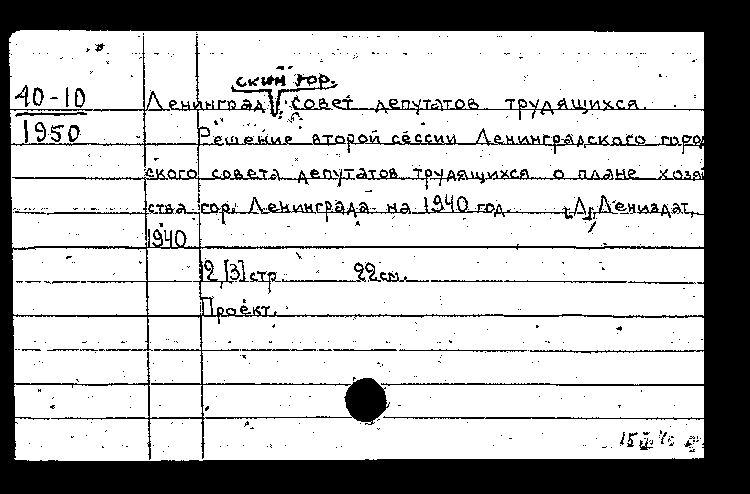 40-10
1950
ский гор.
Ленинград совет депутатов трудящихся.
Решение второй сессии Ленинградского город
ского совета депутатов трудящихся о плане хозяй
ства гор. Ленинграда на 1940 год. [Л] Лениздат,
1940
12,[3] стр. 22 см.
Проект.